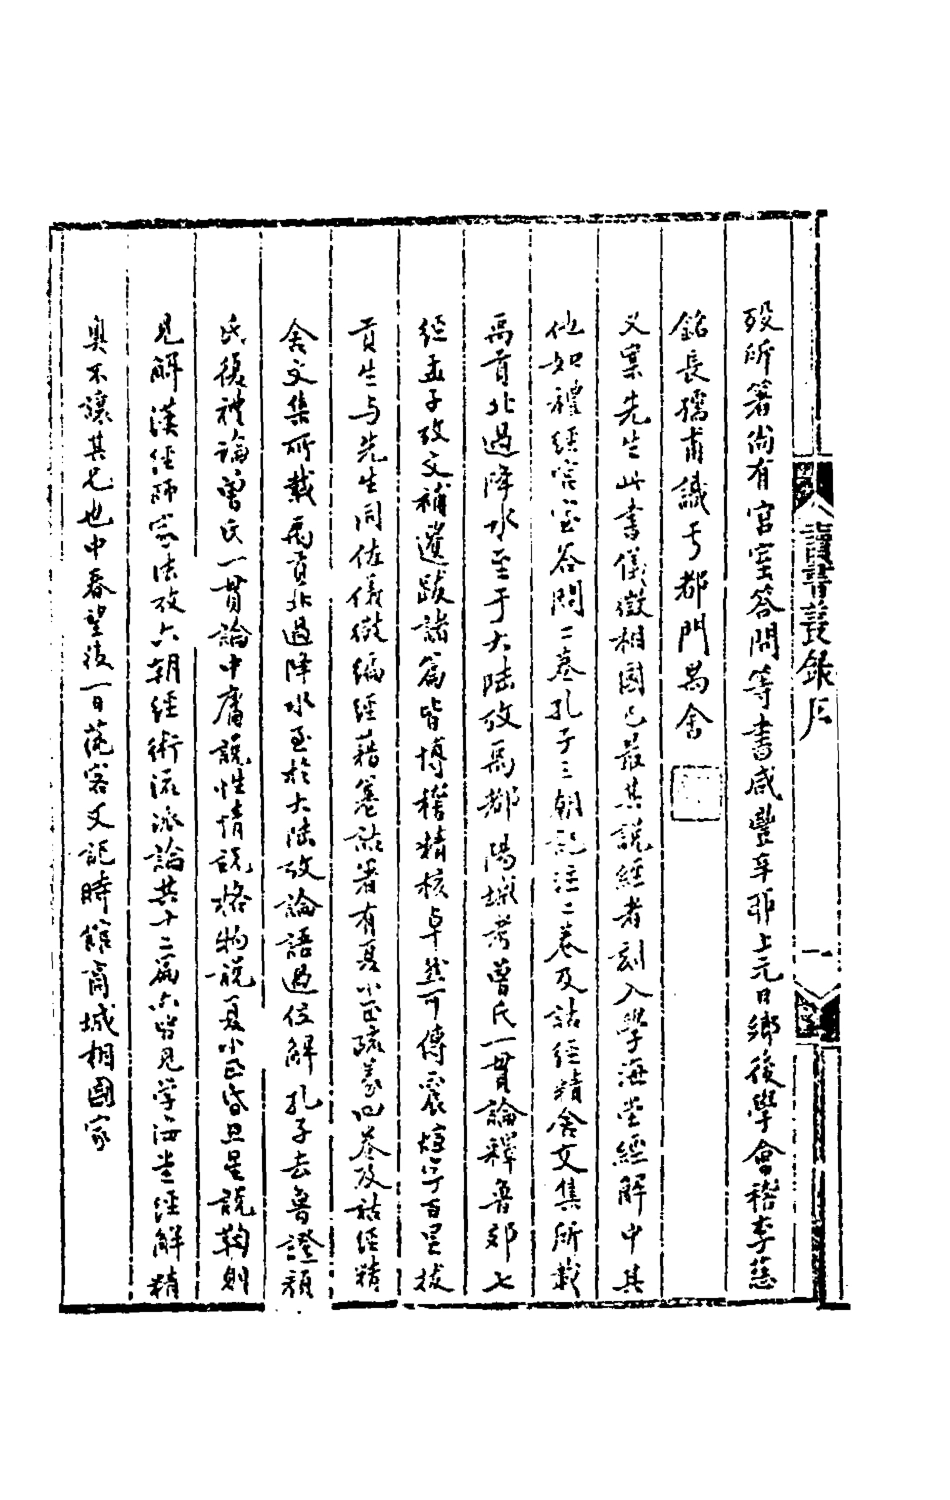 殁所箸尚有宫室答問等書咸豐辛卯上元日鄉後學會稽李慈
銘長孺甫識于都門寓舍
又案先生此書儀徵相國已最其説經者刻入學海堂經解中其
他如禮經宫室答問二卷孔子三朝記注二卷及詁經精舍文集所載
禹貢北過降水至于大陸攷禹都陽城考曾氏一貫論釋魯郊七
經孟子攷文補遺跋諸篇皆博稽精核卓然可傳震煊字百里拔
貢生与先生同佐儀徵編經籍籑詁箸有夏小正疏義四卷及詁經精
舍文集所載禹貢北過降水至於大陸攷論語過位解孔子去魯證顔
氏復禮論曾氏一貫論中庸説性情説格物説夏小正昏旦星説鞠則
見解漢經師家法攷六朝經術流派論共十二篇亦皆見学海堂經解精
奥不讓其兄也中春望後一日蒓客又記時館商城相國家
讀書叢錄序
一